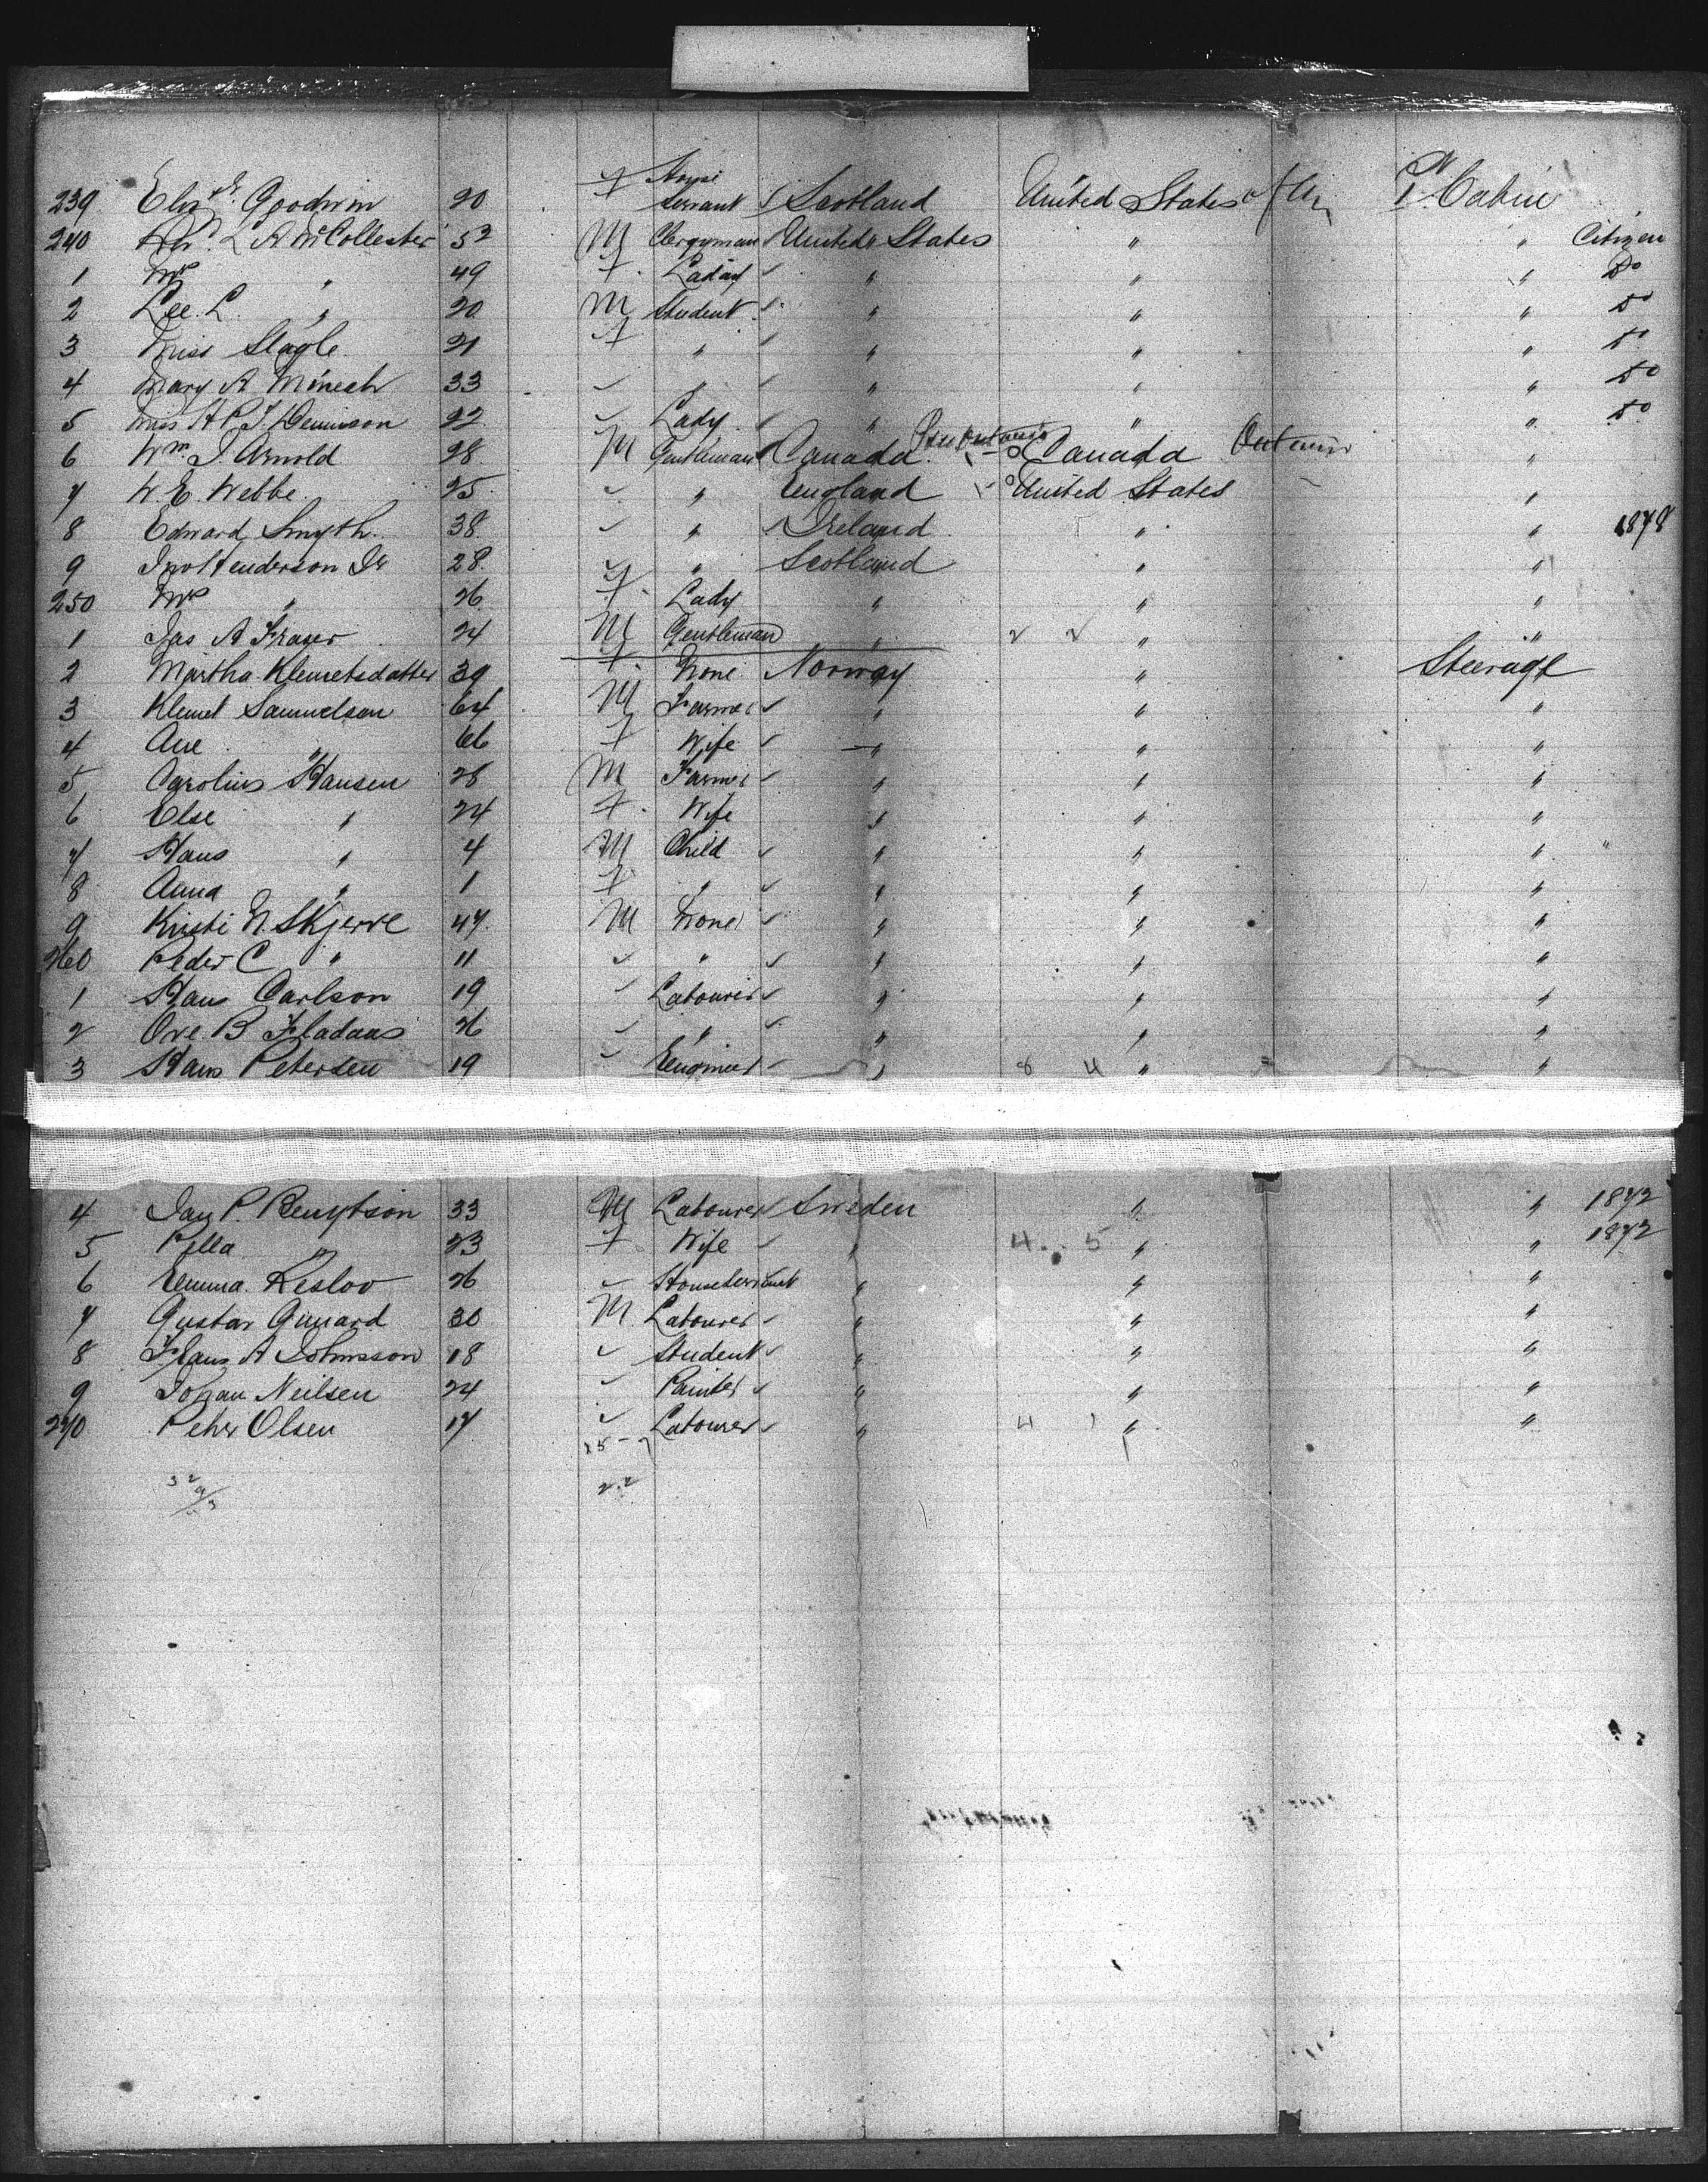 239 Eliz. Goodwin 20 f House Servant Scotland United States 1st Cabin
240 L. A. McCollester 52 M Clergyman United States " " Citizen
1 Mrs " 49 f Lady " " " Do
2 Lee. L. " 20 M Student " " " Do
3 Miss Slagle 21 f " " " " Do
4 Mary A 33 " " " " Do
5 Miss H P J Dennison 22 Lady " " " Do
6 Wm. J. Arnold 28 M Gentleman Canada Canada Ontario "
7 W. E. Webbe 25 " England United States "
8 Edward Smyth 38 " Ireland " " 1878
9 Jno Henderson Jr 28 " Scotland " "
250 Mrs " 26 f Lady " " "
1 Jas A Fraser 24 M Gentleman " " "
2 Martha Klemetsdatter 39 f None Norway " Steerage
3 Klemet Samuelson 64 M Farmer " " "
4 Ane " 66 f Wife " " "
5 Carolius Hansen 28 M Farmer " " "
6 Else " 24 f Wife " " "
7 Hans " 4 M Child " " "
8 Anna " 1 f " " " "
9 Kristi N. Skjerve 47 M None " " "
260 Peder C " 11 " " " "
1 Hans Carlson 19 Labourer " " "
2 Ove. B Fladaas 26 " " " "
3 Hans Petersen 19 Engineer " 8 4 " "
4 Jan P. Bengtson 33 M Labourer Sweden " " 1872
5 Pella " 23 f Wife " 4 5 " " 1872
6 Emma Keslov 26 House Servant " " "
7 Gustav Gunard 30 M Labourer " " "
8 Hans A Johnsson 18 Student " " "
9 Johan Neilsen 24 Painter " " "
270 Pehr Olsen 17 Labourer " 4 1 " "